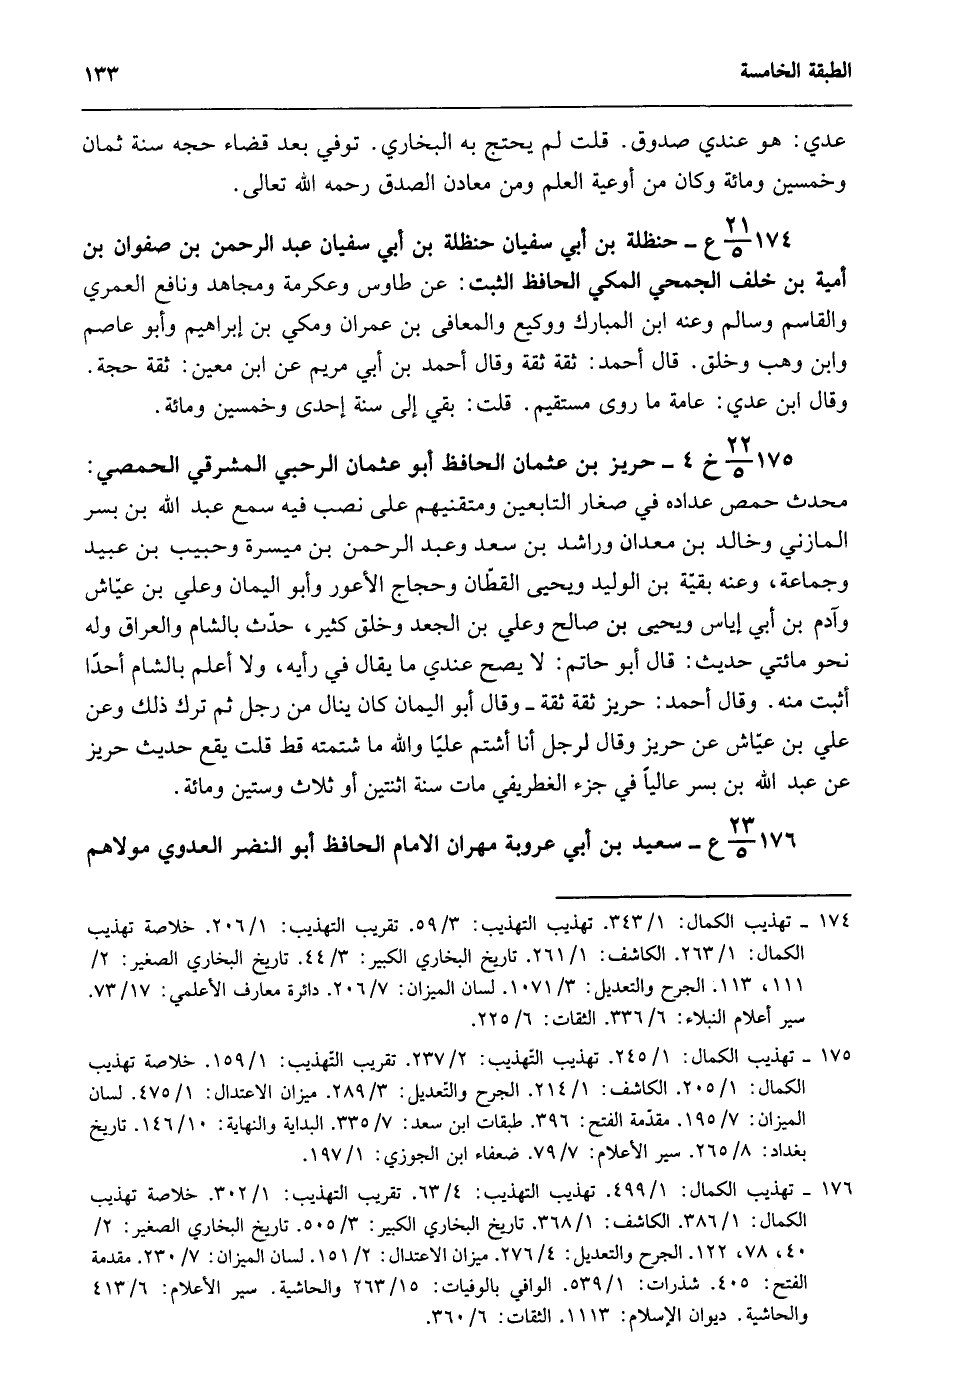 الطبقة الخامسة ١٣٣
عدي: هو عندي صدوق. قلت لم يحتج به البخاري. توفي بعد قضاء حجه سنة ثمان
وخمسين ومائة وكان من أوعية العلم ومن معادن الصدق رحمه الله تعالى.
١٧٤ ٢١/٥ ع ـ حنظلة بن أبي سفيان حنظلة بن أبي سفيان عبد الرحمن بن صفوان بن
أمية بن خلف الجمحي المكي الحافظ الثبت: عن طاوس وعكرمة ومجاهد ونافع العمري
والقاسم وسالم وعنه ابن المبارك ووكيع والمعافى بن عمران ومكي بن إبراهيم وأبو عاصم
وابن وهب وخلق. قال أحمد: ثقة ثقة وقال أحمد بن أبي مريم عن ابن معين: ثقة حجة.
وقال ابن عدي: عامة ما روى مستقيم. قلت: بقي إلى سنة إحدى وخمسين ومائة.
١٧٥ ٢٢/٥ خ ٤ ـ حريز بن عثمان الحافظ أبو عثمان الرحبي المشرقي الحمصي:
محدث حمص عداده في صغار التابعين ومتقنيهم على نصب فيه سمع عبد الله بن بسر
المازني وخالد بن معدان وراشد بن سعد وعبد الرحمن بن ميسرة وحبيب بن عبيد
وجماعة، وعنه بقيّة بن الوليد ويحيى القطّان وحجاج الأعور وأبو اليمان وعلي بن عيّاش
وآدم بن أبي إياس ويحيى بن صالح وعلي بن الجعد وخلق كثير، حدّث بالشام والعراق وله
نحو مائتي حديث: قال أبو حاتم: لا يصح عندي ما يقال في رأيه، ولا أعلم بالشام أحدًا
أثبت منه. وقال أحمد: حريز ثقة ثقة ـ وقال أبو اليمان كان ينال من رجل ثم ترك ذلك وعن
علي بن عيّاش عن حريز وقال لرجل أنا أشتم عليًا والله ما شتمته قط قلت يقع حديث حريز
عن عبد الله بن بسر عالياً في جزء الغطريفي مات سنة اثنتين أو ثلاث وستين ومائة.
١٧٦ ٢٣/٥ ع ـ سعيد بن أبي عروبة مهران الامام الحافظ أبو النضر العدوي مولاهم
١٧٤ ـ تهذيب الكمال: ٣٤٣/١. تهذيب التهذيب: ٥٩/٣. تقريب التهذيب: ٢٠٦/١. خلاصة تهذيب
الكمال: ٢٦٣/١. الكاشف: ٢٦١/١. تاريخ البخاري الكبير: ٤٤/٣. تاريخ البخاري الصغير: ٢/
١١١، ١١٣. الجرح والتعديل: ١٠٧١/٣. لسان الميزان: ٢٠٦/٧. دائرة معارف الأعلمي: ٧٣/١٧.
سير أعلام النبلاء: ٣٣٦/٦. الثقات: ٢٢٥/٦.
١٧٥ ـ تهذيب الكمال: ٢٤٥/١. تهذيب التّهذيب: ٢٣٧/٢. تقريب التّهذيب: ١٥٩/١. خلاصة تهذيب
الكمال: ٢٠٥/١. الكاشف: ٢١٤/١. الجرح والتّعديل: ٢٨٩/٣. ميزان الاعتدال: ٤٧٥/١. لسان
الميزان: ١٩٥/٧. مقدّمة الفتح: ٣٩٦. طبقات ابن سعد: ٣٣٥/٧. البداية والنهاية: ١٤٦/١٠. تاريخ
بغداد: ٢٦٥/٨. سير الأعلام: ٧٩/٧. ضعفاء ابن الجوزي: ١٩٧/١.
١٧٦ ـ تهذيب الكمال: ٤٩٩/١. تهذيب التهذيب: ٦٣/٤. تقريب التهذيب: ٣٠٢/١. خلاصة تهذيب
الكمال: ٣٨٦/١. الكاشف: ٣٦٨/١. تاريخ البخاري الكبير: ٥٠٥/٣. تاريخ البخاري الصغير: ٢/
٤٠، ٧٨، ١٢٢. الجرح والتعديل: ٢٧٦/٤. ميزان الاعتدال: ١٥١/٢. لسان الميزان: ٢٣٠/٧. مقدمة
الفتح: ٤٠٥. شذرات: ٥٣٩/١. الوافي بالوفيات: ٢٦٣/١٥ والحاشية. سير الأعلام: ٤١٣/٦
والحاشية. ديوان الإسلام: ١١١٣. الثقات: ٣٦٠/٦.